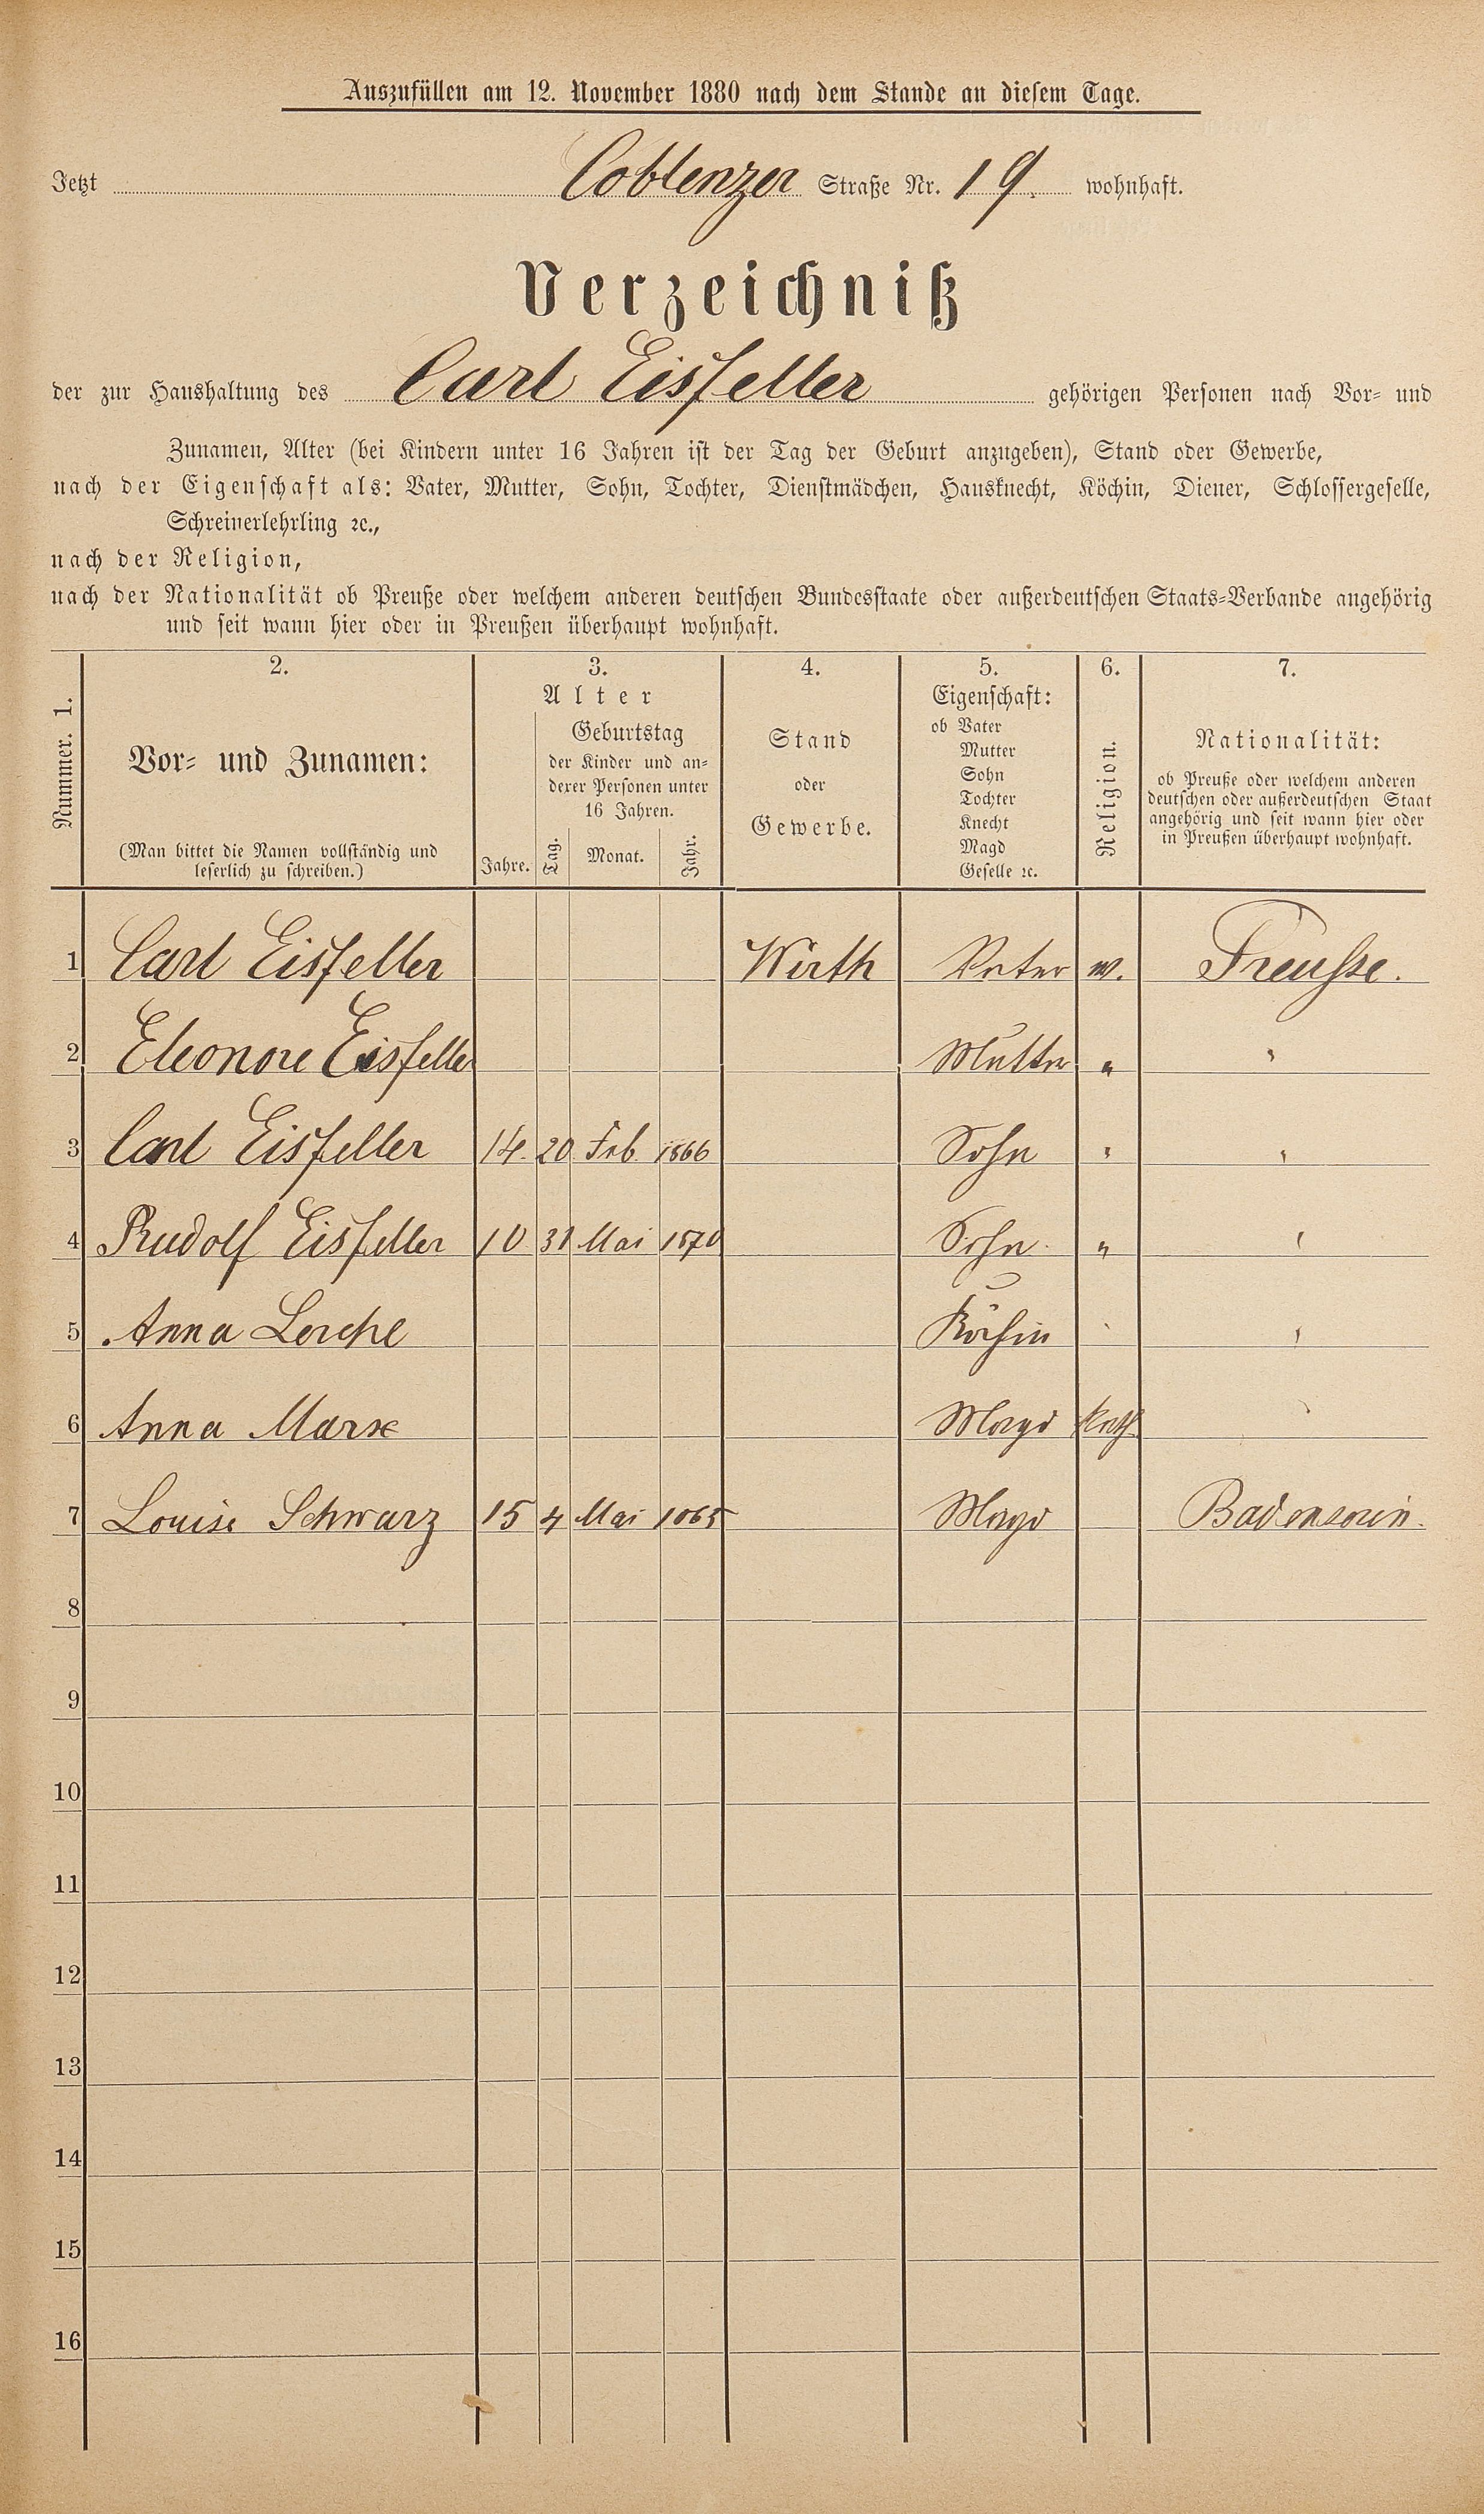 Auszufüllen am 12. November 1880 nach dem Stande an diesem Tage.
Jetzt Coblenzer Straße Nr. 19. wohnhaft.
Verzeichniß
der zur Haushaltung des Carl Eisfeller gehörigen Personen nach Vor- und
Zunamen, Alter (bei Kindern unter 16 Jahren ist der Tag der Geburt anzugeben), Stand oder Gewerbe,
nach der Eigenschaft als: Vater, Mutter, Sohn, Tochter, Dienstmädchen, Hausknecht, Köchin, Diener, Schlossergeselle,
Schreinerlehrling ꝛc.,
nach der Religion,
nach der Nationalität ob Preuße oder welchem anderen deutschen Bundesstaate oder außerdeutschen Staats-Verbande angehörig
und seit wann hier oder in Preußen überhaupt wohnhaft.
Nummer. 1.
2.
Vor- und Zunamen:
(Man bittet die Namen vollständig und
leserlich zu schreiben.)
3.
Alter
Jahre.
Geburtstag
der Kinder und an-
derer Personen unter
16 Jahren.
Tag. Monat. Jahr.
4.
Stand
oder
Gewerbe.
5.
Eigenschaft:
ob Vater
Mutter
Sohn
Tochter
Knecht
Magd
Geselle ꝛc.
6.
Religion.
7.
Nationalität:
ob Preuße oder welchem anderen
deutschen oder außerdeutschen Staat
angehörig und seit wann hier oder
in Preußen überhaupt wohnhaft.
1 Carl Eisfeller Wirth Vater Preusse.
2 Eleonore Eisfeller Mutter " "
3 Carl Eisfeller 14. 20. Feb. 1866 Sohn " "
4 Rudolf Eisfeller 10 31 Mai 1870 Sohn " "
5 Anna Lerche Köchin " "
6 Anna Marx Magd Kath. "
7 Louise Schwarz 15 4 Mai 1865 Magd
8
9
10
11
12
13
14
15
16